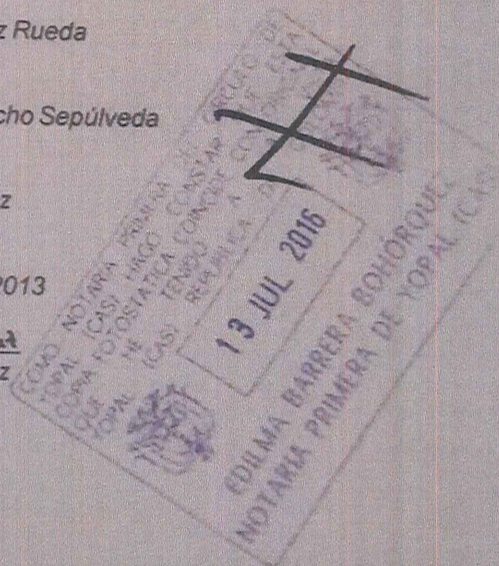 z Rueda
cho Sepúlveda
z
2013
z
COMO NOTARIA PRIMERA DEL CIRCULO DE
YOPAL (CAS) HAGO CONSTAR QUE ESTA
COPIA FOTOSTATICA COINCIDE CON
QUE HE TENIDO A
YOPAL (CAS) REPUBLICA DE
13 JUL 2016
EDILMA BARRERA BOHÓRQUEZ
NOTARIA PRIMERA DE YOPAL (CAS